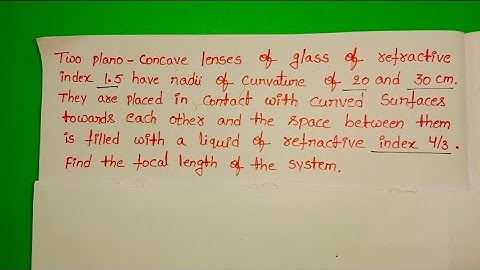 Two plano-concave lenses of glass of refractive
index 1.5 have radii of curvature of 20 and 30 cm.
They are placed in contact with curved surfaces
towards each other and the space between them
is filled with a liquid of refractive index 4/3.
Find the focal length of the system.